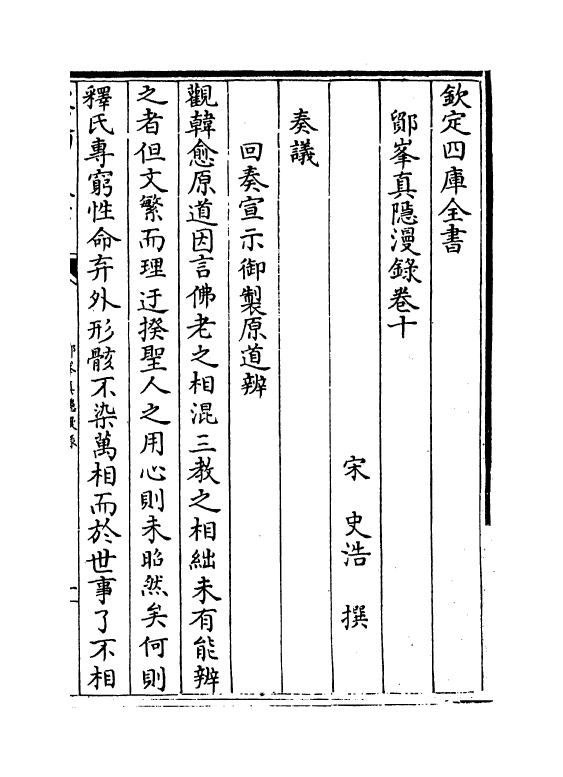 欽定四庫全書
鄮峯真隠漫錄卷十
宋 史浩 撰
奏議
回奏宣示御製原道辨
觀韓愈原道因言佛老之相混三教之相絀未有能辨
之者但文繁而理迂揆聖人之用心則未昭然矣何則
釋氏專窮性命弃外形骸不染萬相而於世事了不相